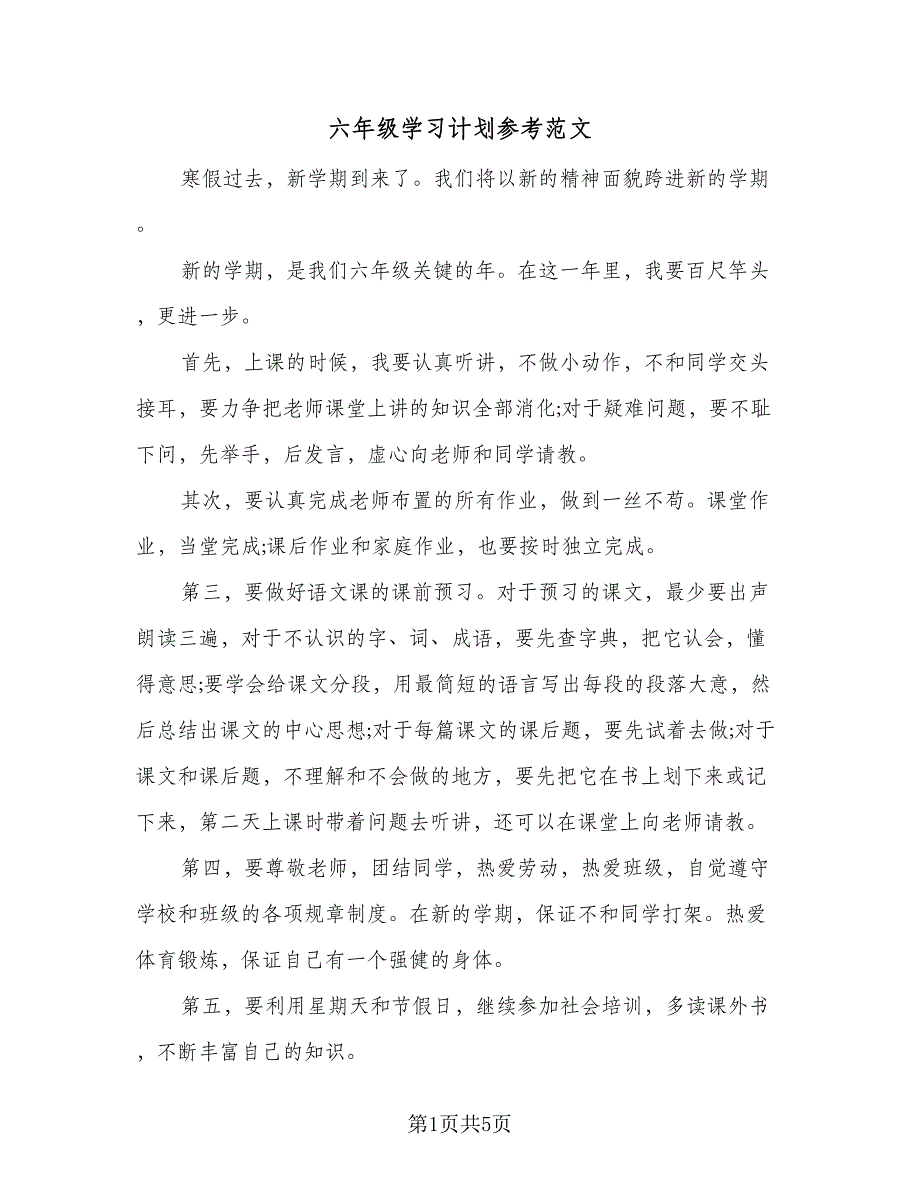 六年级学习计划参考范文
寒假过去，新学期到来了。我们将以新的精神面貌跨进新的学期
。
新的学期，是我们六年级关键的年。在这一年里，我要百尺竿头
，更进一步。
首先，上课的时候，我要认真听讲，不做小动作，不和同学交头
接耳，要力争把老师课堂上讲的知识全部消化;对于疑难问题，要不耻
下问，先举手，后发言，虚心向老师和同学请教。
其次，要认真完成老师布置的所有作业，做到一丝不苟。课堂作
业，当堂完成;课后作业和家庭作业，也要按时独立完成。
第三，要做好语文课的课前预习。对于预习的课文，最少要出声
朗读三遍，对于不认识的字、词、成语，要先查字典，把它认会，懂
得意思;要学会给课文分段，用最简短的语言写出每段的段落大意，然
后总结出课文的中心思想;对于每篇课文的课后题，要先试着去做;对于
课文和课后题，不理解和不会做的地方，要先把它在书上划下来或记
下来，第二天上课时带着问题去听讲，还可以在课堂上向老师请教。
第四，要尊敬老师，团结同学，热爱劳动，热爱班级，自觉遵守
学校和班级的各项规章制度。在新的学期，保证不和同学打架。热爱
体育锻炼，保证自己有一个强健的身体。
第五，要利用星期天和节假日，继续参加社会培训，多读课外书
，不断丰富自己的知识。
第1页共5页